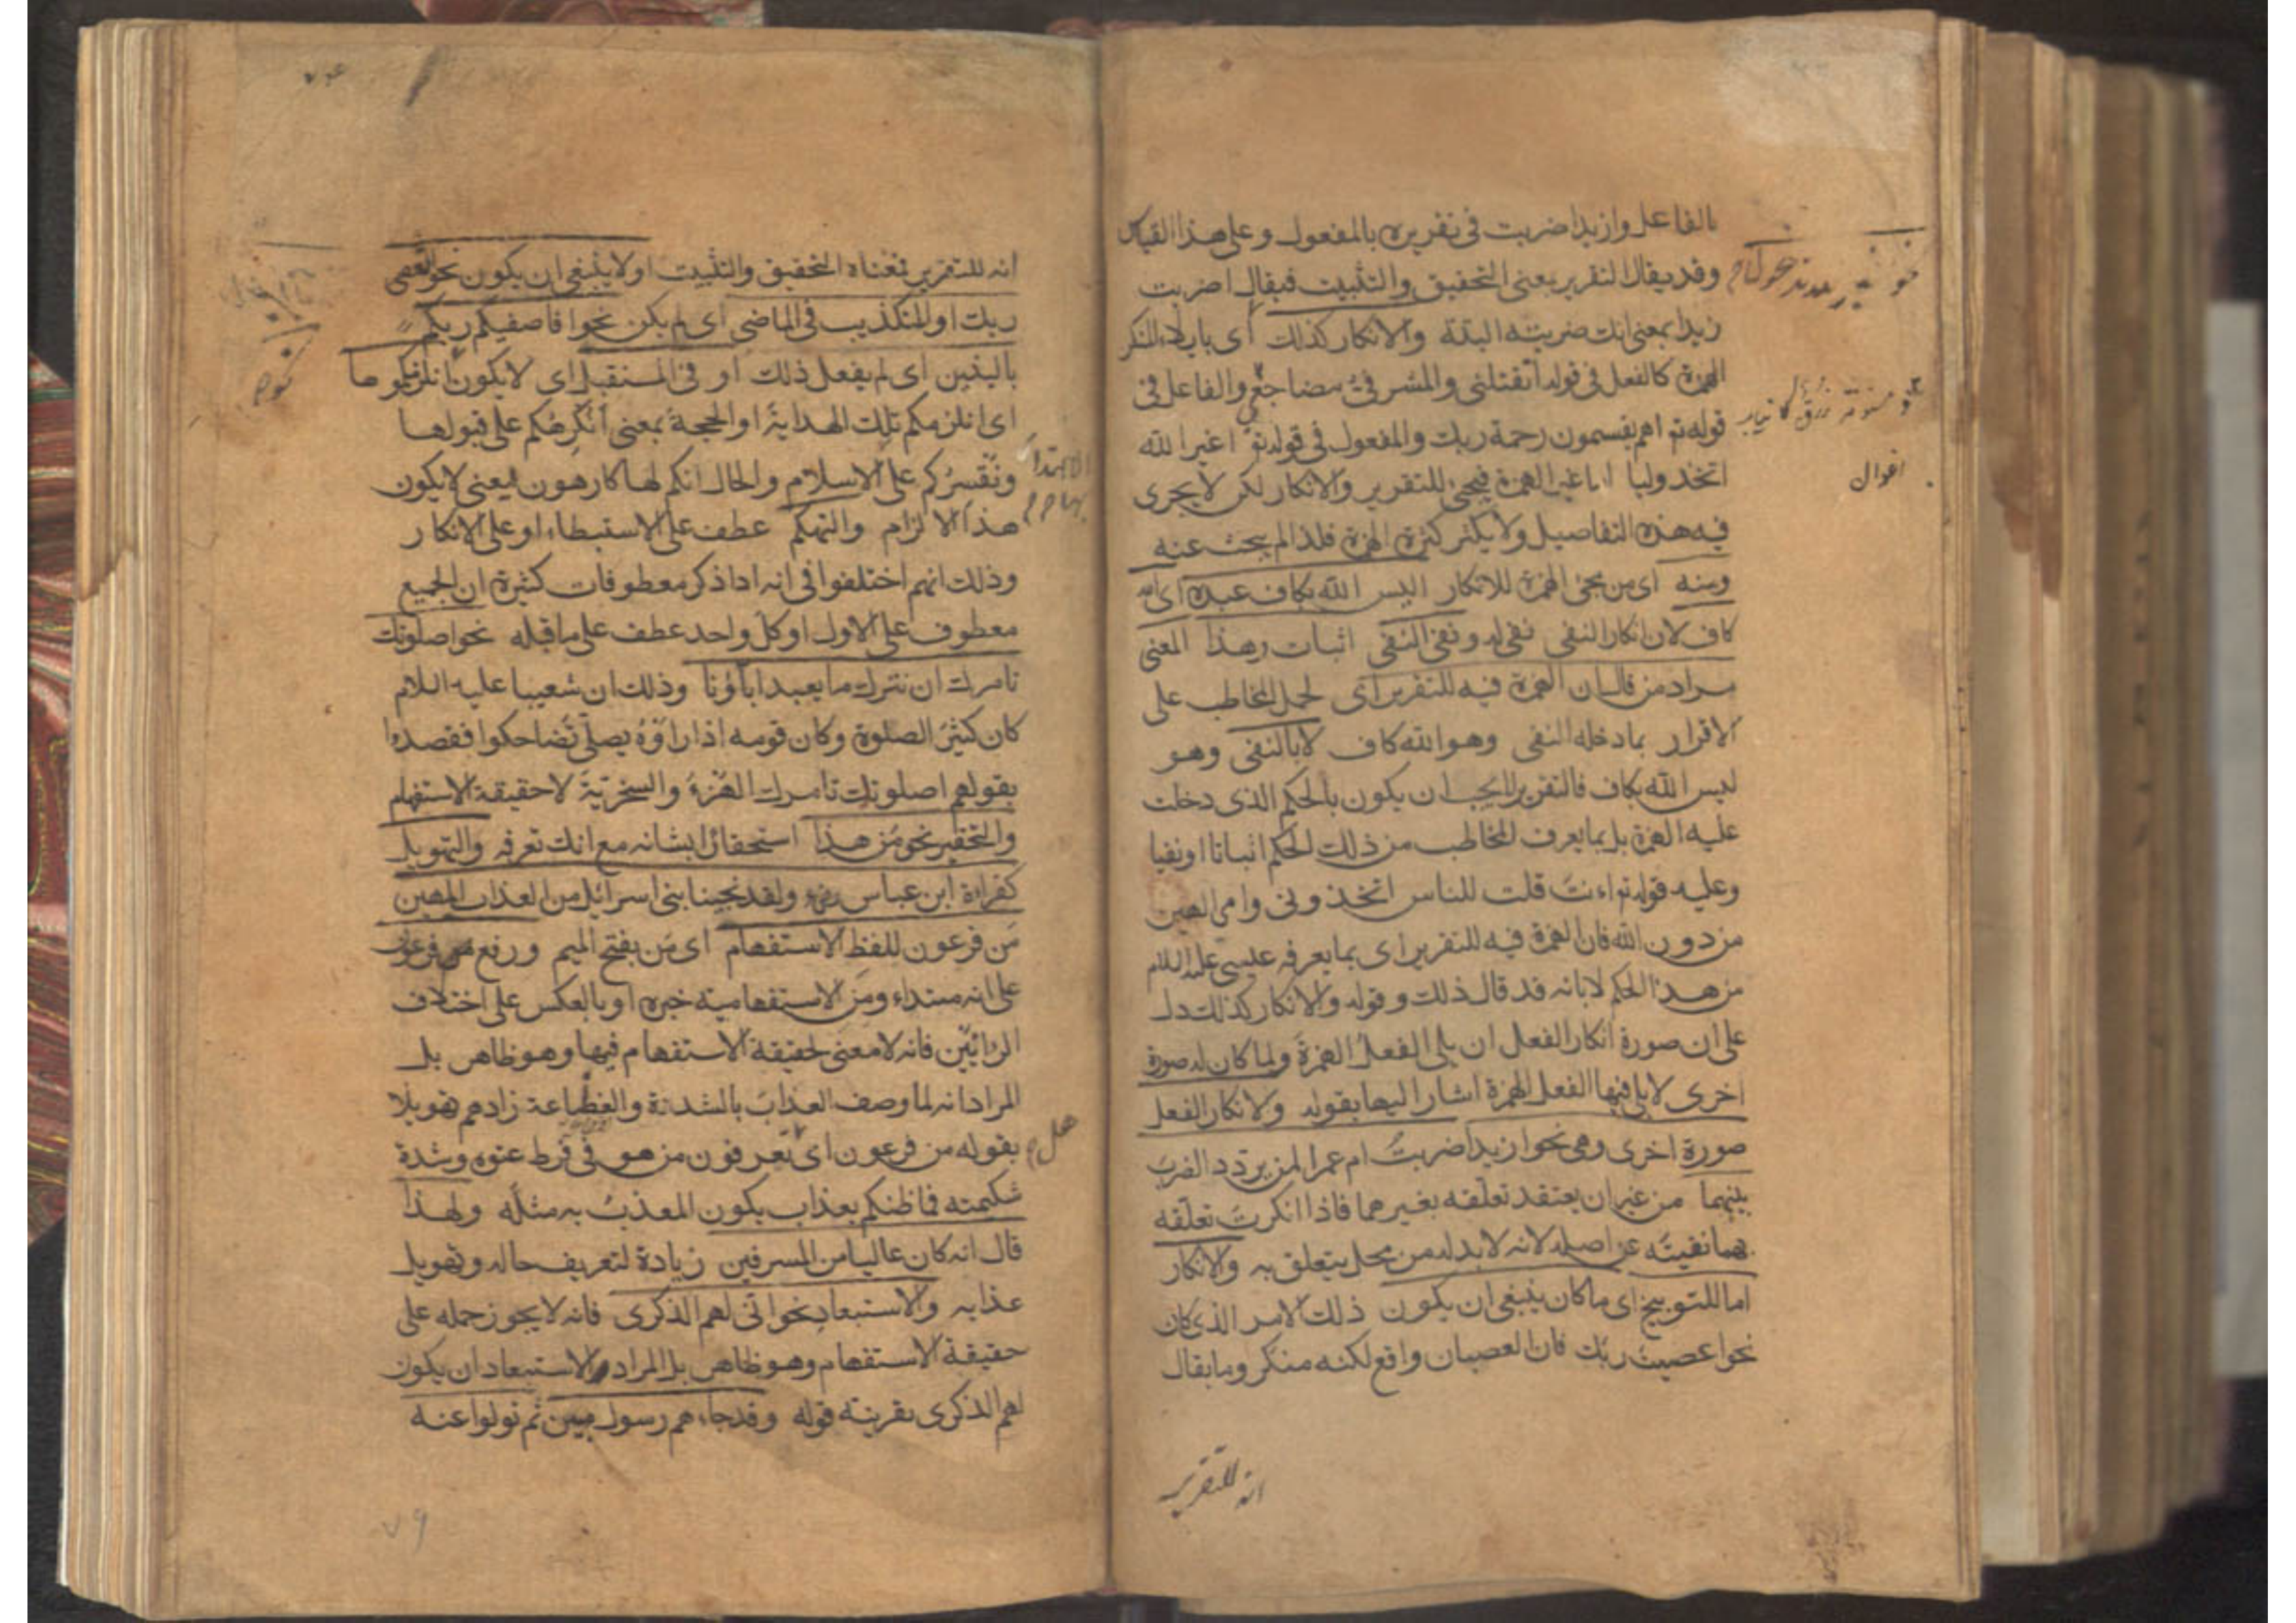 بالفاعل وازيدا ضربت فى تقريره بالمفعول وعلى هذا القياس
وقد يقال التقرير بمعنى التحقيق والتثبيت فيقال اضربت
زيدا بمعنى انك ضربته البتة والانكار كذلك اى بايلاء المنكر
الهمزة كالفعل فى قوله اتقتلنى والمشرفىّ مضاجعى والفاعل فى
قوله تع اهم يقسمون رحمة ربك والمفعول فى قوله تع اغير الله
اتخذ وليا اما غير الهمزة فيجئ للتقرير والانكار لكن لا يجرى
فيه هذه التفاصيل ولا يكثر كثرة الهمزة فلذا لم يبحث عنه
ومنه اى من مجئ الهمزة للانكار اليس الله بكاف عبده اى الله
كاف لان انكار النفى نفى له ونفى النفى اثبات وهذا المعنى
مراد من قال ان الهمزة فيه للتقرير اى لحمل المخاطب على
الاقرار بما دخله النفى وهو الله كاف لا بالنفى وهو
ليس الله بكاف فالتقرير لا يجب ان يكون بالحكم الذى دخلت
عليه الهمزة بل بما يعرف المخاطب من ذلك الحكم اثباتا او نفيا
وعليه قوله تع اءنت قلت للناس اتخذونى وامى الهين
من دون الله فان الهمزة فيه للتقرير اى بما يعرفه عيسى عليه السلام
من هذا الحكم لا بانه قد قال ذلك وقوله والانكار كذلك دل
على ان صورة انكار الفعل ان يلى الفعلُ الهمزةَ ولما كان له صورة
اخرى لا يلى فيها الفعل الهمزة اشار اليها بقوله ولانكار الفعل
صورة اخرى وهى نحو ازيدا ضربتَ ام عمرا لمن يردّد الضربَ
بينهما من غير ان يعتقد تعلقه بغيرهما فاذا انكرت تعلّقه
بهما نفيتَه عن اصله لانه لا بد له من محل يتعلق به والانكار
اما للتوبيخ اى ما كان ينبغى ان يكون ذلك الامر الذى كان
نحو اعصيتَ ربّك فان العصيان واقع لكنه منكر وما يقال
انه للتقرير
اقوال
انه للتقرير فمعناه التحقيق والتثبيت او لا ينبغى ان يكون نحو اتعصى
ربك او للتكذيب فى الماضى اى لم يكن نحو افاصفيكم ربكم
بالبنين اى لم يفعل ذلك او فى المستقبل اى لا يكون انلزمكموها
اى انلزمكم تلك الهداية او الحجة بمعنى أنُكرِهُكم على قبولها
ونُقسِرُكم على الاسلام والحال انكم لها كارهون يعنى لا يكون
هذا الالزام والتهكم عطف على الاستبطاء او على الانكار
وذلك انهم اختلفوا فى انه اذا ذكر معطوفات كثيرة ان الجميع
معطوف على الاول او كل واحد عطف على ما قبله نحو اصلوتك
تامرك ان نترك ما يعبد اباؤنا وذلك ان شعيبا عليه السلام
كان كثير الصلوة وكان قومه اذا راوه يصلّى تضاحكوا فقصدوا
بقولهم اصلوتك تامرك الهُزءَ والسخريّةَ لا حقيقة الاستفهام
والتحقير نحو مَن هذا استحقارا بشانه مع انك تعرفه والتهويل
كقراءة ابن عباس رضى ولقد نجينا بنى اسرائيل من العذاب المهين
مَن فرعون للفظ الاستفهام اى مَن بفتح الميم ورفع فرعون
على انه مبتداء ومَن الاستفهامية خبره او بالعكس على اختلاف
الرائيّين فانه لا معنى لحقيقة الاستفهام فيها وهو ظاهر بل
المراد انه لما وصف العذابَ بالشدة والفظاعة زادهم تهويلا
بقوله من فرعون اى تعرفون من هو فى فرط عتوه وشدة
شكيمته فما ظنكم بعذاب يكون المعذبُ به مثلَه ولهذا
قال انه كان عاليا من المسرفين زيادة لتعريف حاله وتهويل
عذابه والاستبعاد نحو انّى لهم الذكرى فانه لا يجوز حمله على
حقيقة الاستفهام وهو ظاهر بل المراد الاستبعاد ان يكون
لهم الذكرى بقرينة قوله وقد جاءهم رسول مبين ثم تولوا عنه
هل
٧٩